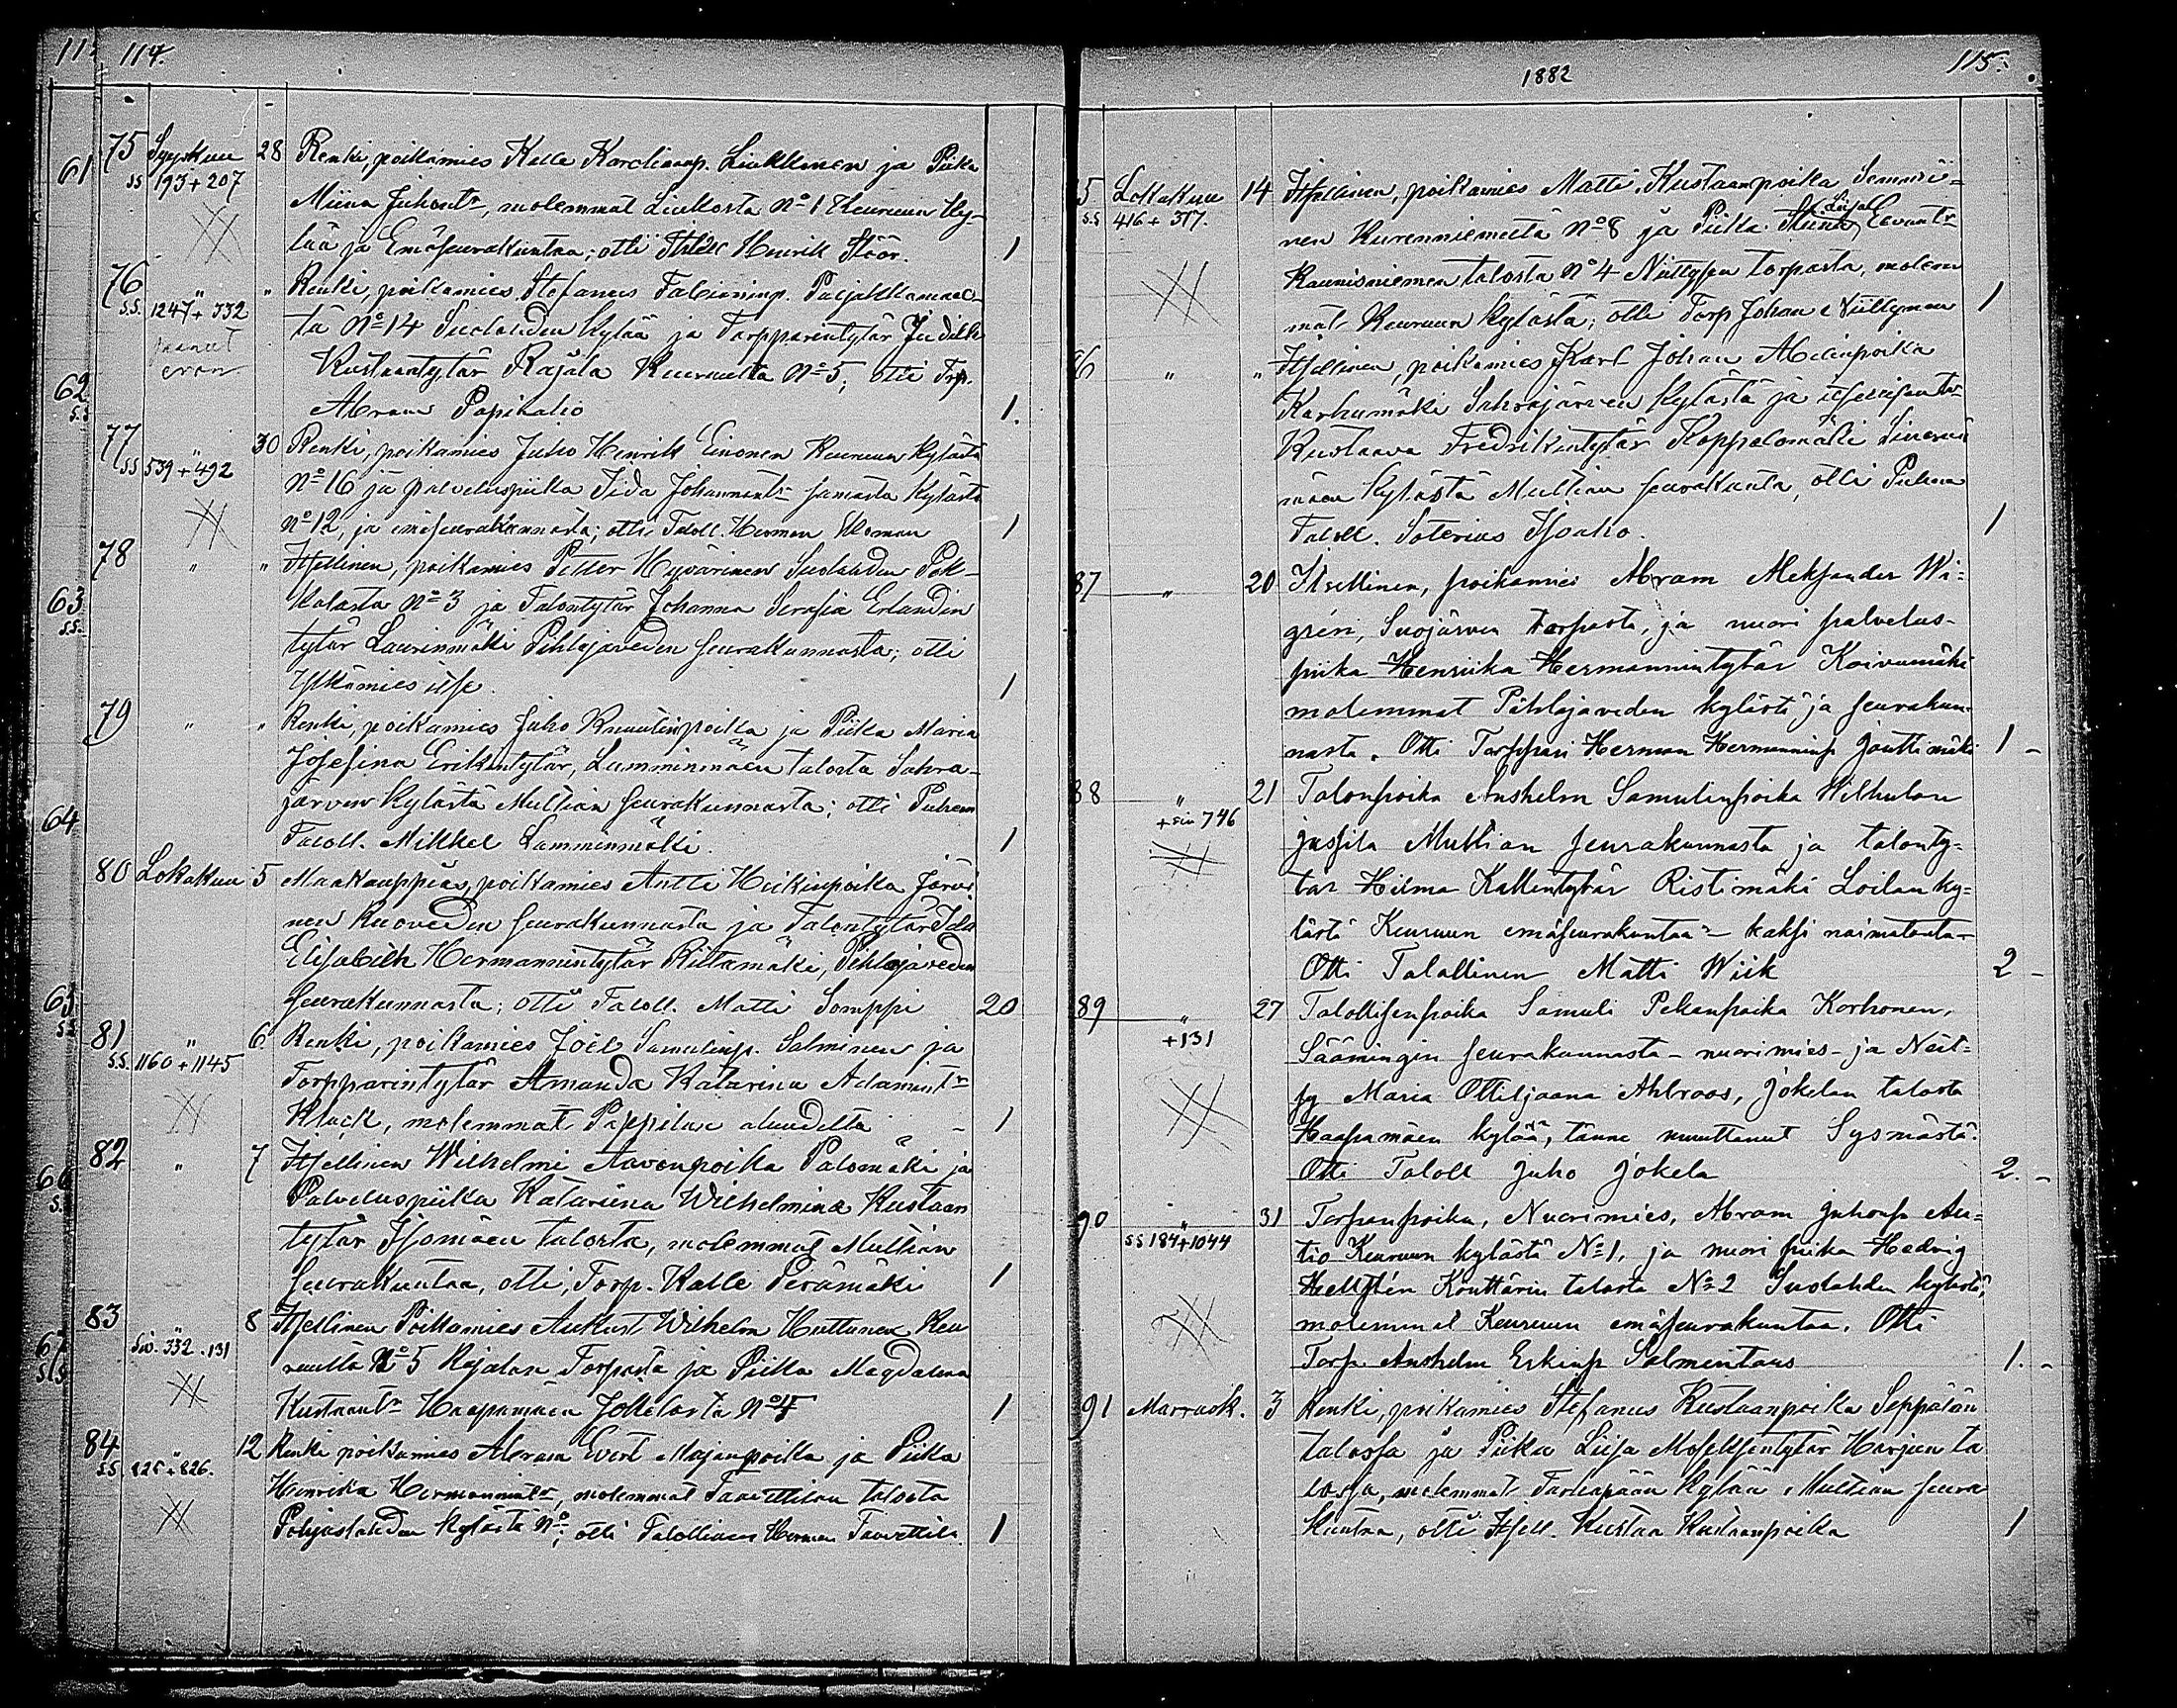 114.
75 Syyskuu 28 Renki, poikamies Kalle Karoliinanp. Liukkonen ja Piika
ss 193+207
Miina Juhontr, molemmat Liukosta No 1 Keuruun Ky-
lää ja Emäseurakuntaa; otti Henrik Höör. 1
76 " " Renki, poikamies Stefanus Fabianinp.
s.s. 1247+332
tä No 14 Suolahden Kylää ja Torpparintytär Judith
Kustaantytär Rajala Keuruulta No 5; otti Trp.
Abram Papinalio 1.
77 " 30 Renki, poikamies Juho Henrik Einonen Keuruun Kylästä
ss 539+492
No 16 ja palveluspiika Iida Johannantr samasta Kylästä
No 12, ja emäseurakunnasta; otti Taloll. Herman 1
78 " " Itsellinen, poikamies Petter Hyvärinen Suolahden Pok-
kalasta No 3 ja Talontytär Johanna Serafia Erlandin
tytär Laurinmäki Pihlajaveden seurakunnasta; otti
Ylkämies itse. 1
79 " " Renki, poikamies Juho Knuutinpoika ja Piika Maria
Josefina Erikintytär, Lamminmäen talosta Sahra-
järven Kylästä Multian seurakunnasta; otti Puhem
Taloll. Mikkel Lamminmäki. 1
80 Lokakuu 5 Maakauppias, poikamies Antti Heikinpoika Järvi
nen Ruoveden seurakunnasta ja Talontytär Ida
Elisabeth Hermannintytär Riitamäki, Pihlajaveden
seurakunnasta; otti Taloll. Matti Somppi 20
81 " 6. Renki, poikamies Joel Samulinp. Salminen ja
s.s. 1160+1145
Torpparintytär Amanda Katarina Adamintr
Klack, molemmat Pappilan aluudelta - 1
82 " 7 Itsellinen Wilhelmi Aavonpoika Palomäki ja
Palveluspiika Katariina Wilhelmina Kustaan
tytär Isomäen talosta, molemmat Multian
seurakuntaa, otti, Torp. Kalle Perämäki 1
83 " 8 Itsellinen Poikamies August Wilhelm Huttunen Keu
Siv. 332.131
ruulta No 5 Rajalan Torpasta ja Piika Magdalena
Kustaantr Haapamäen Jokelasta No 1
84 " 12 Renki poikamies Abram Evert Majanpoika ja Piika
s.s. 825+826.
Henrika Hermannintr, molemmat Taavettilan talosta
Pohjaslahden kylästä No; otti Talollinen Herman Taavettila. 1
1882
115.
85 Lokakuu 14 Itsellinen, poikamies Matti Kustaanpoika
s.s 416+317.
nen Kurenniemeltä No 8 ja Piika Liisa Eevantr
Kaunisniemen talosta No 4 Niittysen torpasta, molem
mat Keuruun Kylästä; otti Torp. Johan Niittynen 1
86 " " Itsellinen, poikamies Karl Johan Abelinpoika
Karhumäki Sahrajärven Kylästä ja itsellisentr
Kustaava Fredrikintytär Koppelomäki
mäen Kylästä Multian seurakunta, otti Puhem
Taloll. Soterius Isoaho. 1
87 " 20 Itsellinen, poikamies Abram Aleksander Wi=
grén, Suojärven torpasta, ja nuori palvelus-
piika Henriika Hermannintytär Koivumäki
molemmat Pihlajaveden kylästä ja seurakun-
nasta. Otti Torppari Herman Hermanninp Jouttimäki 1 -
88 " 21 Talonpoika Anshelm Samulinpoika Wilhulan
+siv 746
jussila Multian seurakunnasta ja talonty-
tär Hilma Kallentytär Ristimäki Loilan ky-
lästä Keuruun emäseurakuntaa - kaksi naimatonta -
Otti Talollinen Matti Wiik 2 -
89 " 27 Talollisenpoika Samuli Pekanpoika Korhonen,
+131
Säämingin seurakunnasta - nuorimies - ja Neit=
sy Maria Ottiljaana Ahlroos, Jokelan talosta
Haapamäen kylää, tänne muuttanut Sysmästä.
Otti Taloll Juho Jokela 2. -
90 " 31 Torpanpoika, Nuorimies, Abram Juhonp Au=
ss 184+1044
tio Keuruun kylästä No 1, ja nuori piika Hedvig
Hellstén Kouttarin talosta No 2 Suolahden kylästä,
molemmat Keuruun emäseurakuntaa. Otti
Torp. Anshelm Erkinp Salmentaus 1. -
91 Marrask. 3 Renki, poikamies Stefanus Kustaanpoika Seppälän
talossa ja Piika Liisa Moseksentytär Harjun ta
lossa, molemmat Tarhapään Kylää Multian seura
kuntaa, otti Itsell. Kustaa Kustaanpoika 1